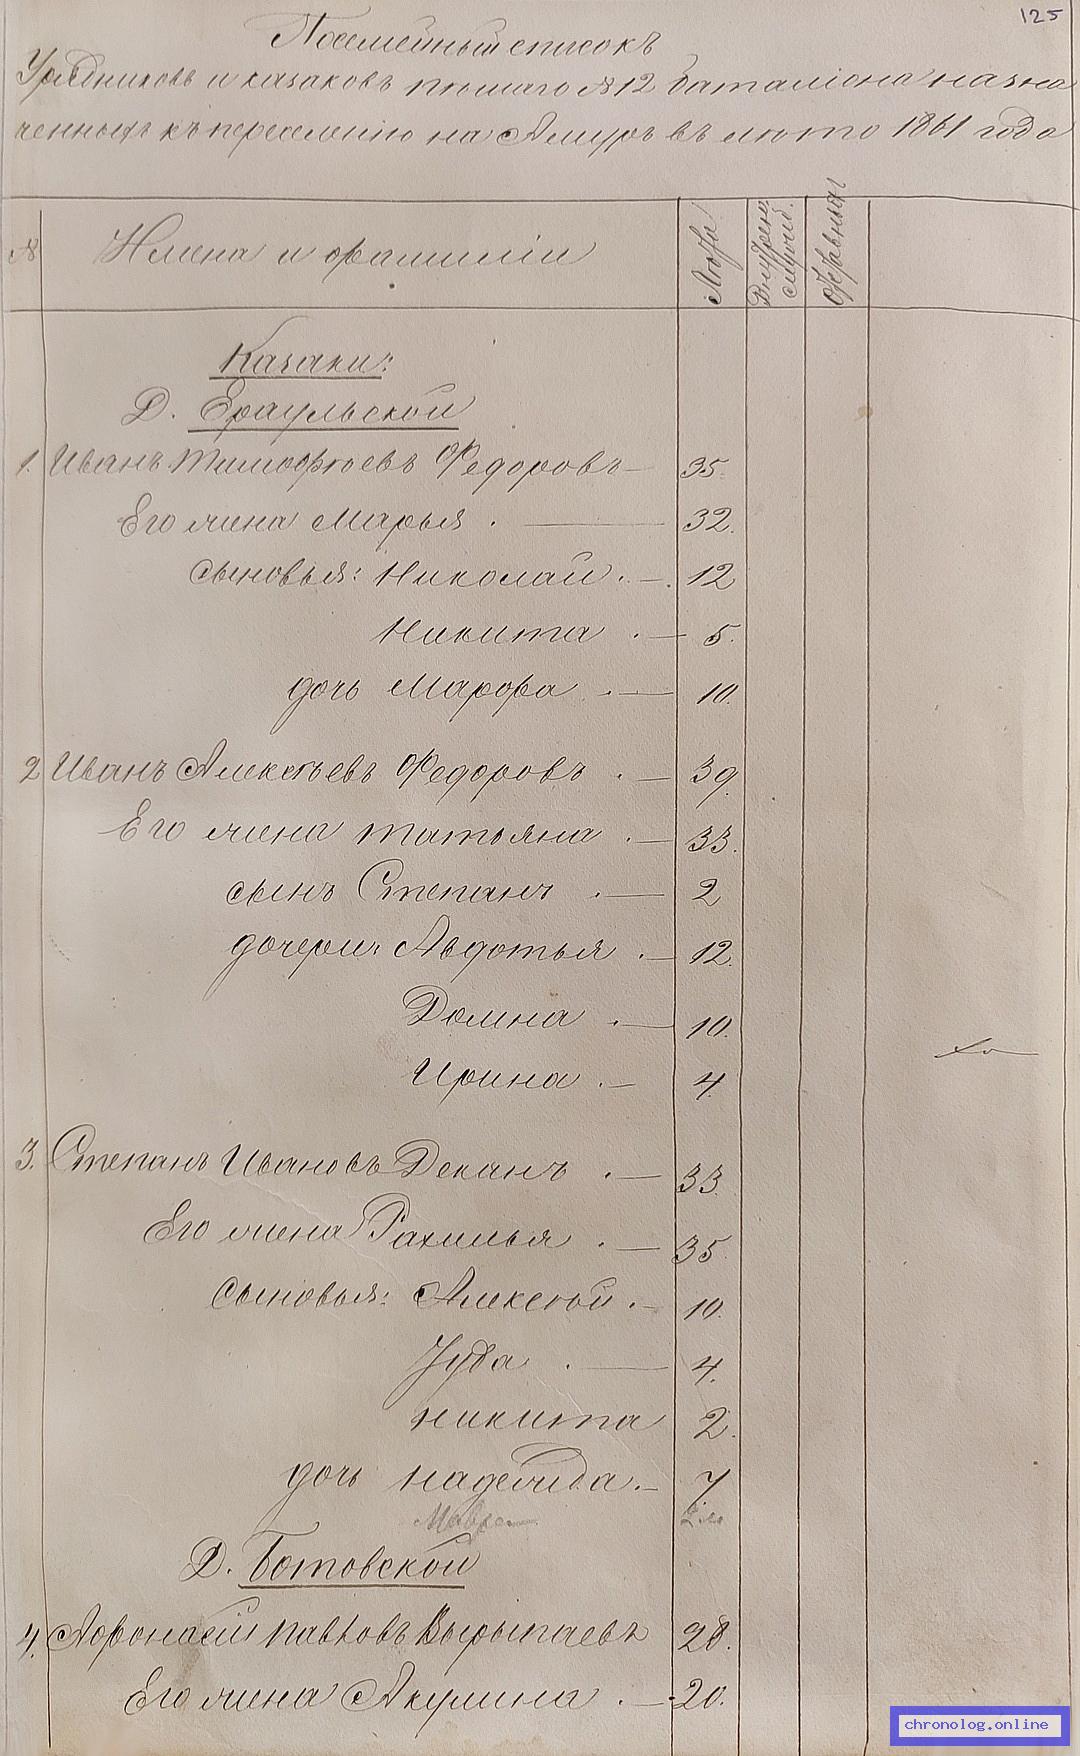 125
Посемейный списокъ
Урядниковъ и казаковъ пѣшаго № 12 баталіона назна
ченныхъ къ переселенію на Амуръ въ лѣто 1861 года
№ Имена и фамиліи Лѣта Внутрен. служб.
Казаки:
Д. Ераульской
1. Иванъ Тимофѣевъ Федоровъ 35.
Его жена Марья . 32.
сыновья: Николай . 12
Никита . 5.
дочь Марфа . 10.
2 Иванъ Алексѣевъ Федоровъ . 39.
Его жена Татьяна . 33.
сынъ Степанъ . 2
дочери: Авдотья . 12.
Домна . 10.
Ирина . 4.
3. Степанъ Ивановъ Деканъ . 33.
Его жена Рахилья . 35.
Сыновья: Алексѣй . 10.
Іуда . 4.
Никита 2.
дочь Надежда . 7
Мавра
Д. Ботовской
4. Афонасій Павловъ Вырыпаевъ 28.
Его жена Акулина . 20.
chronolog.online